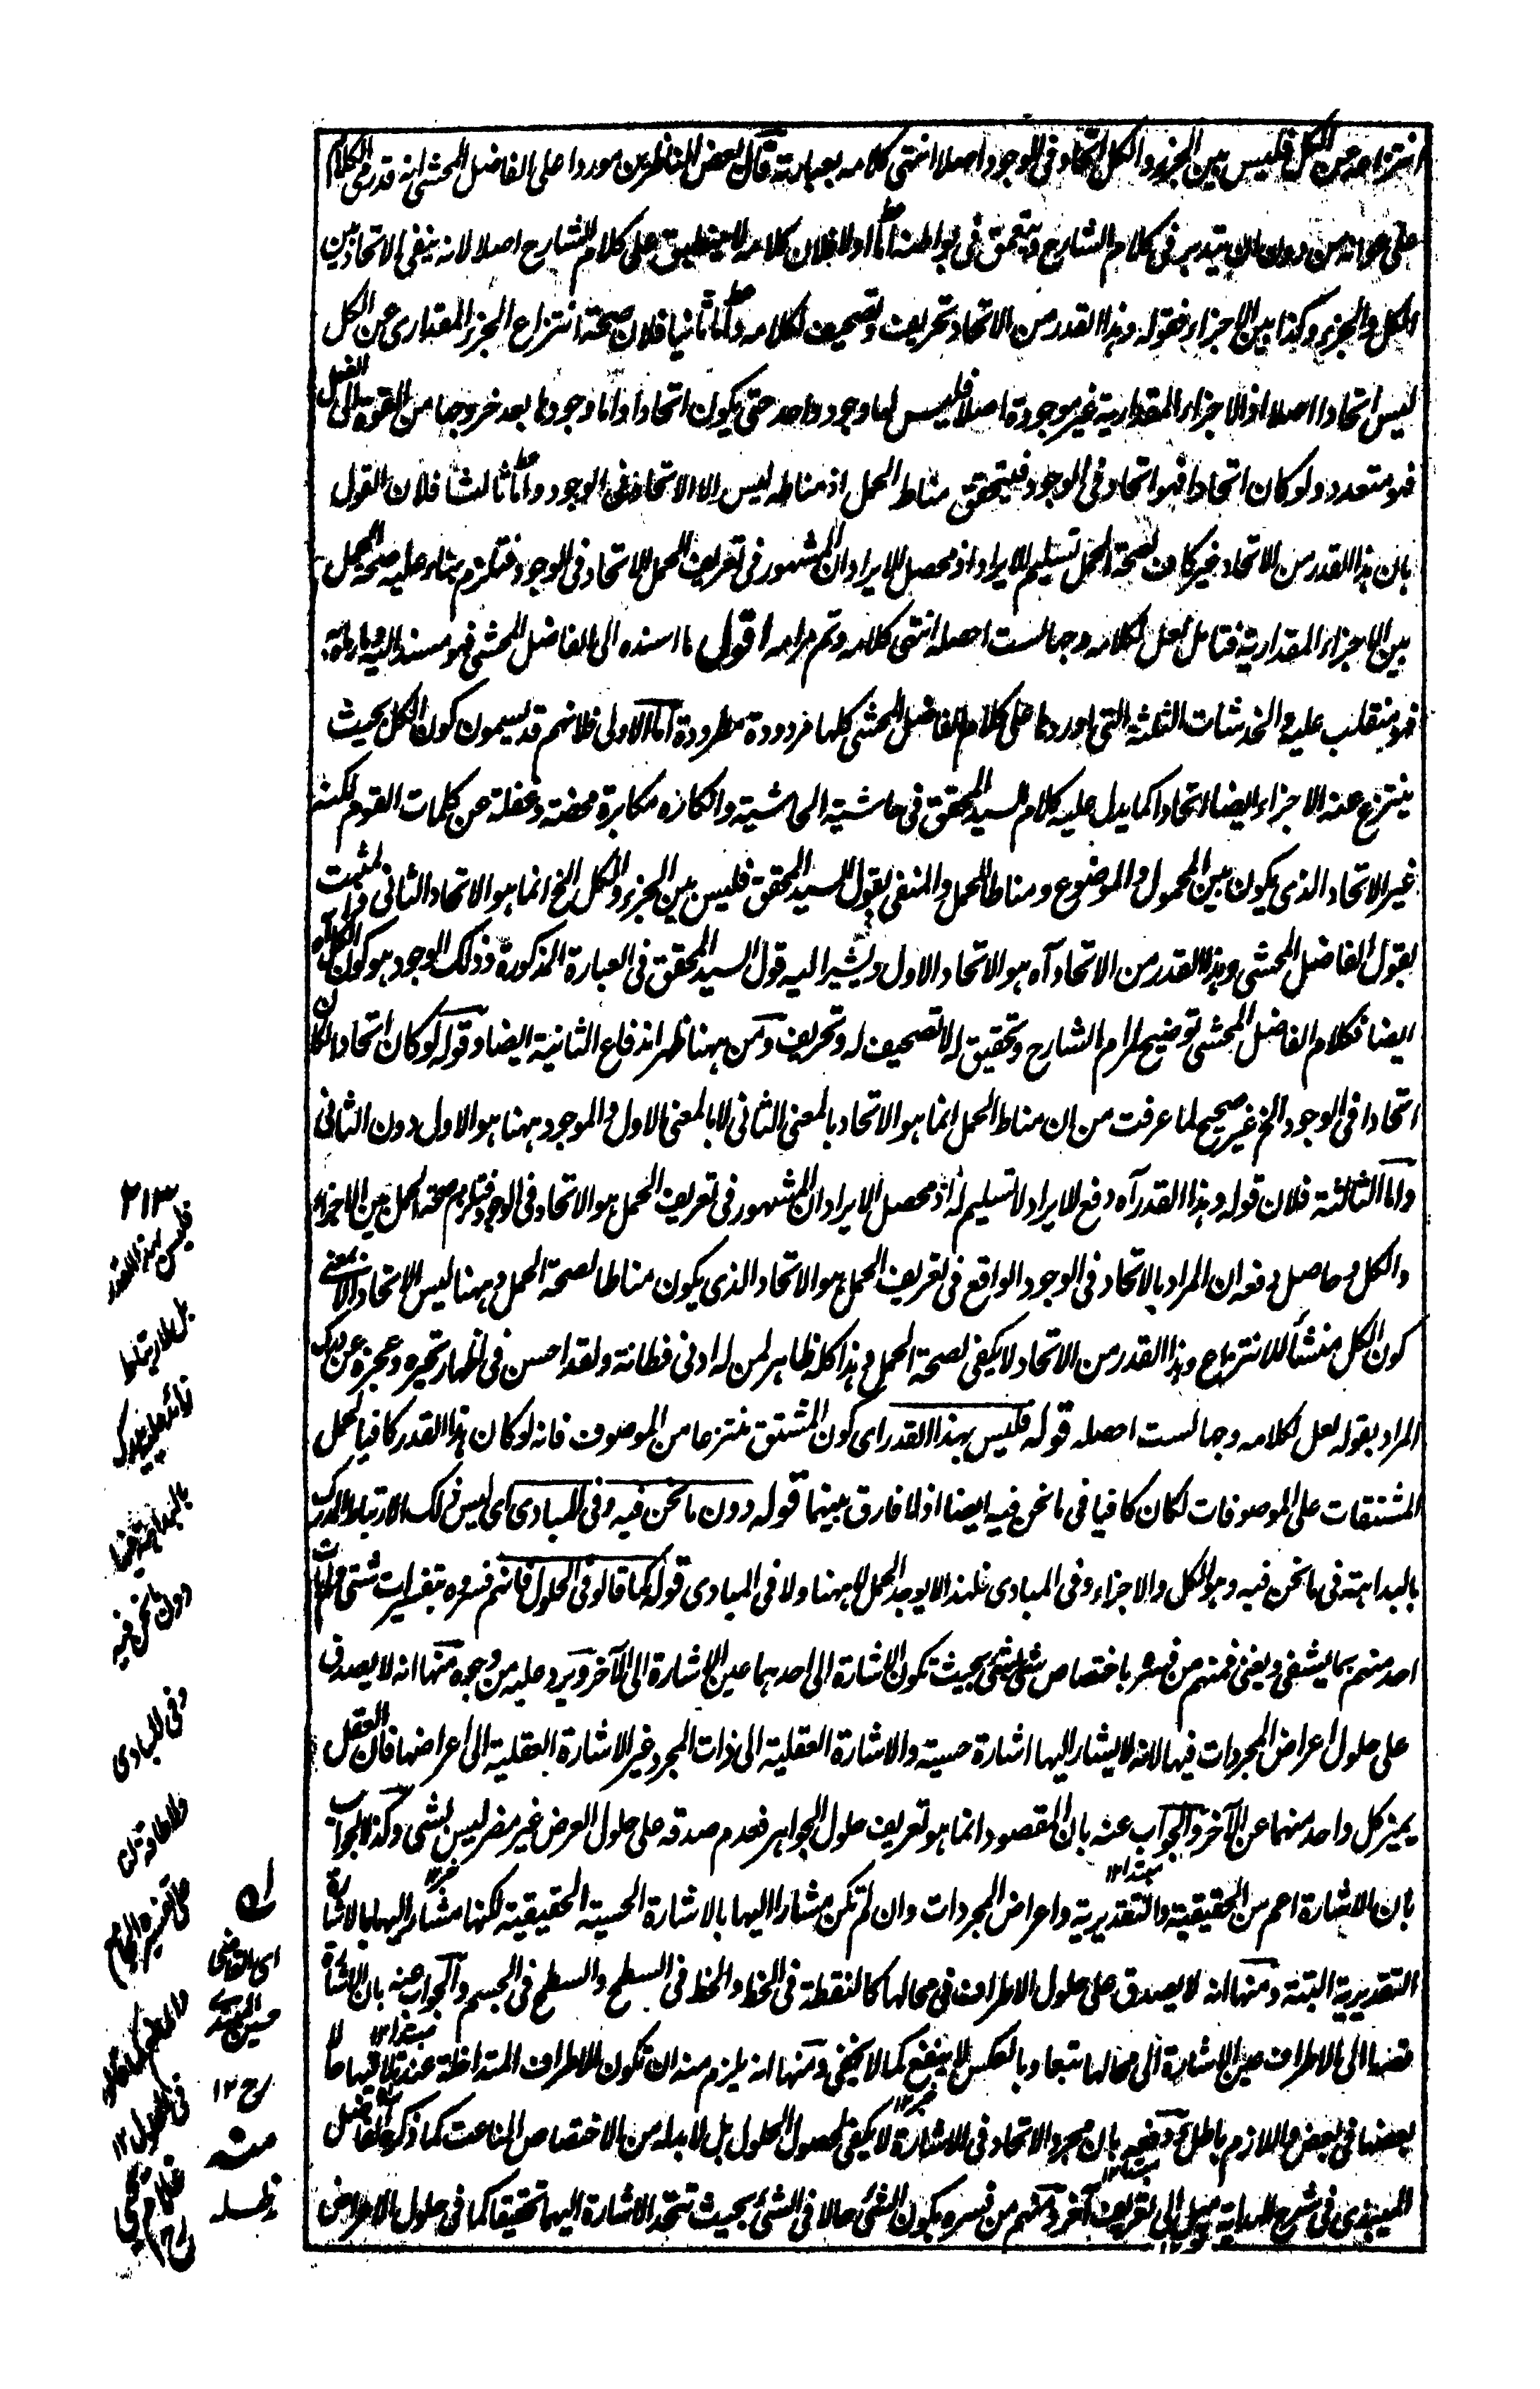 انتزاعه عن الكل فليس بين الجزء والكل اتحاد فى الوجود اصلا انتهى كلامه بعبارته قال بعض الناظرين موردا على الفاضل المحشى انه قد رمى الكلام
على عواهنه من دون ان يتدبر فى كلام الشارح ويتعمق فى بواطنه اما اولا فلان كلامه لا ينطبق على كلام الشارح اصلا لانه ينفى الاتحاد بين
الكل والجزء وكذا بين الاجزاء فقوله وهذا القدر من الاتحاد تحريف وتصحيف لكلامه واما ثانيا فلان صحة انتزاع الجزء المقدارى عن الكل
ليس اتحادا اصلا اذ الاجزاء المقدارية غير موجودة اصلا فليس لها وجود واحد حتى يكون اتحادا واما وجودها بعد خروجها من القوة الى الفعل
فهو متعدد ولو كان اتحادا فهو اتحاد فى الوجود فيتحقق مناط الحمل اذ مناطه ليس الا الاتحاد فى الوجود واما ثالثا فلان القول
بان هذا القدر من الاتحاد غير كاف لصحة الحمل تسليم للايراد اذ محصل الايراد ان المشهور فى تعريف الحمل الاتحاد فى الوجود فتلزم بناء عليه صحة الحمل
بين الاجزاء المقدارية فتامل لعل لكلامه وجها لست احصله انتهى كلامه وتم مرامه اقول ما اسنده الى الفاضل المحشى فهو مسند اليه
فهو منقلب عليه والخدشات الثلثة التى اوردها على كلام الفاضل المحشى كلها مردودة مطرودة اما الاولى فلانهم قد يسمون كون الكل بحيث
ينتزع عنه الاجزاء ايضا اتحادا كما يدل عليه كلام السيد المحقق فى حاشية الحاشية وانكاره مكابرة محضة وغفلة عن كلمات القوم لكنه
غير الاتحاد الذى يكون بين المحمول والموضوع ومناطا للحمل والمنفى بقول السيد المحقق فليس بين الجزء والكل الخ انما هو الاتحاد الثانى والمثبت
بقول الفاضل المحشى وهذا القدر من الاتحاد آه هو الاتحاد الاول ويشير اليه قول السيد المحقق فى العبارة المذكورة وذلك الوجود هو كون الكل آه
ايضا فكلام الفاضل المحشى توضيح لمرام الشارح وتحقيق له لا تصحيف له وتحريف ومن ههنا ظهر اندفاع الثانية ايضا وقوله لو كان اتحادا لكان
اتحادا فى الوجود الخ غير صحيح لما عرفت من ان مناط الحمل انما هو الاتحاد بالمعنى الثانى لا بالمعنى الاول والموجود ههنا هو الاول دون الثانى
واما الثالثة فلان قوله وهذا القدر آه دفع للايراد لا تسليم له اذ محصل الايراد ان المشهور فى تعريف الحمل هو الاتحاد فى الوجود فتلزم صحة الحمل بين الاجزاء
والكل وحاصل دفعه ان المراد بالاتحاد فى الوجود الواقع فى تعريف الحمل هو الاتحاد الذى يكون مناطا لصحة الحمل وههنا ليس الاتحاد الا بمعنى
كون الكل منشأ للانتزاع وهذا القدر من الاتحاد لا يكفى لصحة الحمل وهذا كله ظاهر لمن له ادنى فطانة ولقد احسن فى اظهار تحيره وعجزه عن درك
المراد بقوله لعل لكلامه وجها لست احصله قوله فليس بهذا القدر اى كون المشتق منتزعا من الموصوف فانه لو كان هذا القدر كافيا لحمل
المشتقات على الموصوفات لكان كافيا فى ما نحن فيه ايضا اذ لا فارق بينهما قوله دون ما نحن فيه وفى المبادى اى ليس ذلك الارتباط المدرك
بالبداهة فى ما نحن فيه وهو الكل والاجزاء وفى المبادى فلهذا لا يوجد الحمل لا ههنا ولا فى المبادى قوله كما قالوا فى الحلول فانهم فسروه بتفسيرات شتى
احد منهم بما يشفى ويغنى فمنهم من فسر باختصاص شئ بشئ بحيث تكون الاشارة الى احدهما عين الاشارة الى الآخر ويرد عليه من وجوه منها انه لا يصدق
على حلول اعراض المجردات فيها لانه لا يشار اليها اشارة حسية والاشارة العقلية الى ذات المجرد غير الاشارة العقلية الى اعراضها فان العقل
يميز كل واحد منهما عن الآخر والجواب عنه بان المقصود انما هو تعريف حلول الجواهر فعدم صدقه على حلول العرض غير مضر ليس بشئ وكذا الجواب
بان الاشارة اعم من الحقيقية والتقديرية واعراض المجردات وان لم تكن مشارا اليها بالاشارة الحسية الحقيقية لكنها مشار اليها بالاشارة
التقديرية البتة ومنها انه لا يصدق على حلول الاطراف فى محالها كالنقطة فى الخط والخط فى السطح والسطح فى الجسم والجواب عنه بان الاشارة
قصدا الى الاطراف عين الاشارة الى محالها تبعا وبالعكس لا ينفع كما لا يخفى ومنها انه يلزم منه ان تكون الاطراف المتداخلة عند تلاقيها حالا
بعضها فى بعض واللازم باطل ودفعه بان مجرد الاتحاد فى الاشارة لا يكفى لحصول الحلول بل لا بد له من الاختصاص الناعت كما ذكره الفاضل
الميبذى فى شرح الهداية ميل الى تعريف آخر ومنهم من فسره بكون الشئ حالا فى الشئ بحيث تتحد الاشارة اليهما تحقيقا كما فى حلول الاعراض
٣١٣
فليس بهذا القدر
بل لارتباط
بالبداهة
دون ما نحن فيه
وفى المبادى
اى القاضى
منه